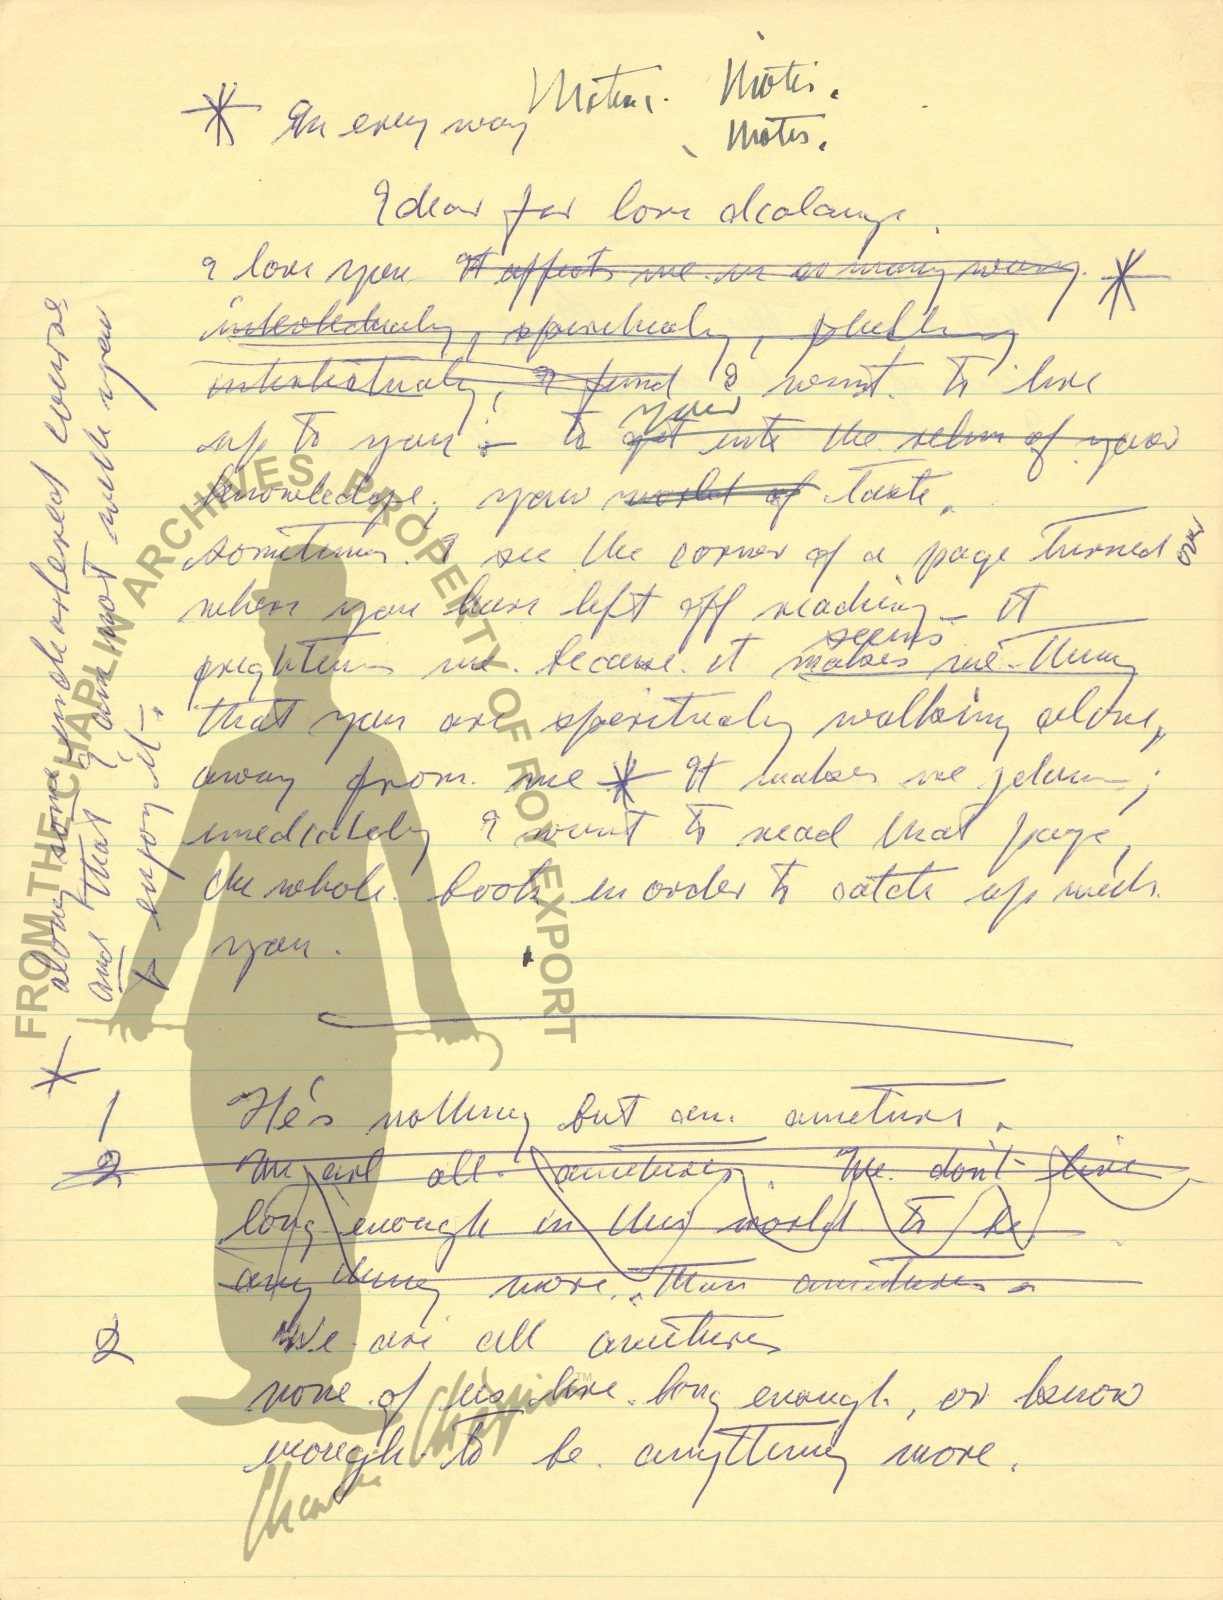 Notes. Notes.
* In every way
Notes.
Idear for love dialauge.
I love you It affects me in so many ways. *
intelectualy, spiritualy,
intelectualy, I find I want to live
your
up to you – to get into the relm of your
knowledge, your world of taste.
sometimes I see the corner of a page turned over
where you have left off reading – it
seems
frightens me because it makes me think
that you are spiritualy walking alone,
away from me * It makes me jelous;
imediately I want to read that page,
the whole book in order to catch up with
you.
* along some unchartered course
and that I am not with you
+ enjoy it –.
1 He's nothing but an ameture.
2 We are all ametures. We don't live
long enough in this world to be
any thing more than ametures.
2 We are all ametures
none of us live long enough, or know
enough to be anything more.
FROM THE CHAPLIN ARCHIVES. PROPERTY OF ROY EXPORT
Charlie Chaplin™